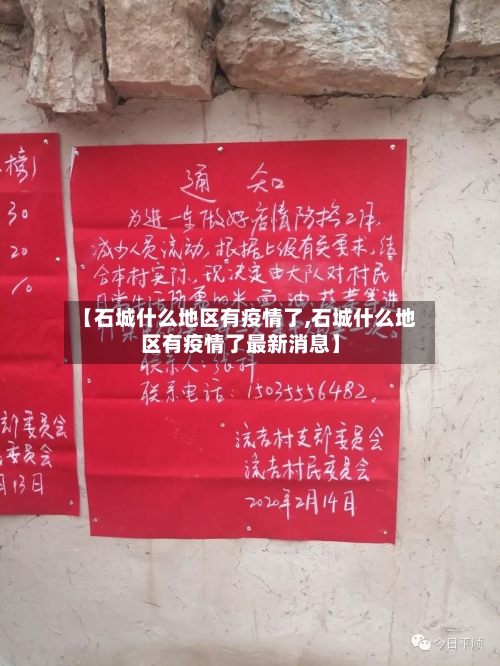 榜)
30
20
10
月13日
通 知
为进一步做好疫情防控工作,
减少人员流动,根据上级有关要求,结
合本村实际,现决定由大队对村民
日常生活所需的米、面、油、蔬菜等进
【石城什么地区有疫情了,石城什么地
区有疫情了最新消息】
联系人:张科
联系电话:15035556482。
流吉村支部委员会
流吉村民委员会
2020年2月14日
今日平顺